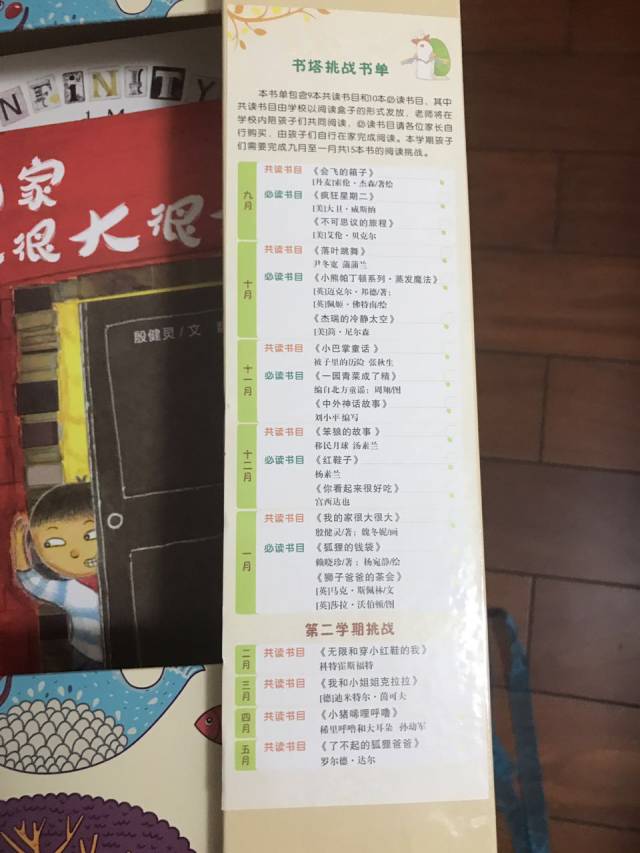 INFINITY
家
很大很
殷健灵/文
书塔挑战书单
本书单包含9本共读书目和10本必读书目，其中
共读书目由学校以阅读盒子的形式发放，老师将在
学校内陪孩子们共同阅读，必读书目请各位家长自
行购买，由孩子们自行在家完成阅读。本学期孩子
们需要完成九月至一月共15本书的阅读挑战。
九月
共读书目 《会飞的箱子》
[丹麦]索伦·杰森/著绘
必读书目 《疯狂星期二》
[美]大卫·威斯纳
《不可思议的旅程》
[美]艾伦·贝克尔
十月
共读书目 《落叶跳舞》
尹冬宽 蒲蒲兰
必读书目 《小熊帕丁顿系列·蒸发魔法》
[英]迈克尔·邦德/著；
[英]佩姬·佛特南/绘
《杰瑞的冷静太空》
[美]简·尼尔森
十一月
共读书目 《小巴掌童话》
被子里的历险 张秋生
必读书目 《一园青菜成了精》
编自北方童谣；周翔/图
《中外神话故事》
刘小平编写
十二月
共读书目 《笨狼的故事》
移民月球 汤素兰
必读书目 《红鞋子》
杨素兰
《你看起来很好吃》
宫西达也
一月
共读书目 《我的家很大很大》
殷健灵/著；魏冬妮/画
必读书目 《狐狸的钱袋》
赖晓珍/著；杨宛静/绘
《狮子爸爸的茶会》
[英]马克·斯佩林/文
[英]莎拉·沃伯顿/图
第二学期挑战
二月 共读书目 《无限和穿小红鞋的我》
科特霍斯福特
三月 共读书目 《我和小姐姐克拉拉》
[德]迪米特尔·茵可夫
四月 共读书目 《小猪唏哩呼噜》
稀里呼噜和大耳朵 孙幼军
五月 共读书目 《了不起的狐狸爸爸》
罗尔德·达尔